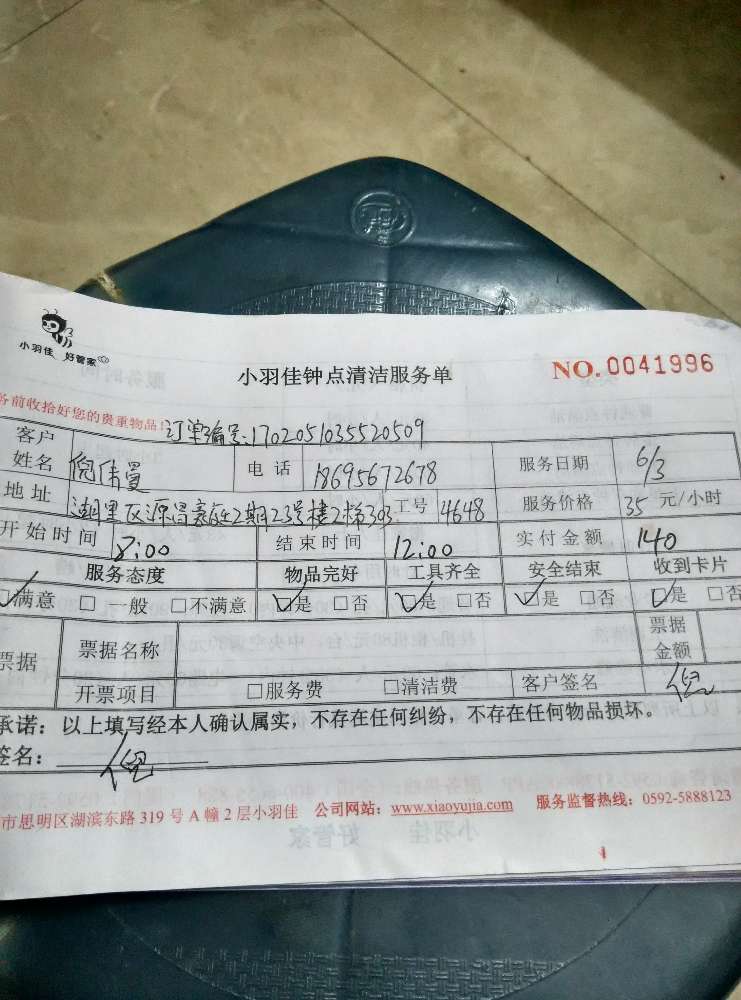 小羽佳 好管家
小羽佳钟点清洁服务单
NO.0041996
务前收拾好您的贵重物品!
订单编号:1702051035520509
客户姓名 倪伟曼 电话 18695672678 服务日期 6/3
地址 湖里区源昌豪庭2期23号楼2梯303 工号 4648 服务价格 35 元/小时
开始时间 8:00 结束时间 12:00 实付金额 140
服务态度 物品完好 工具齐全 安全结束 收到卡片
☑满意 □一般 □不满意 ☑是 □否 ☑是 □否 ☑是 □否 ☑是 □否
票据 票据名称 票据金额
开票项目 □服务费 □清洁费 客户签名 倪
承诺:以上填写经本人确认属实,不存在任何纠纷,不存在任何物品损坏。
签名: 倪
市思明区湖滨东路 319 号 A 幢 2 层小羽佳 公司网站:www.xiaoyujia.com 服务监督热线:0592-5888123